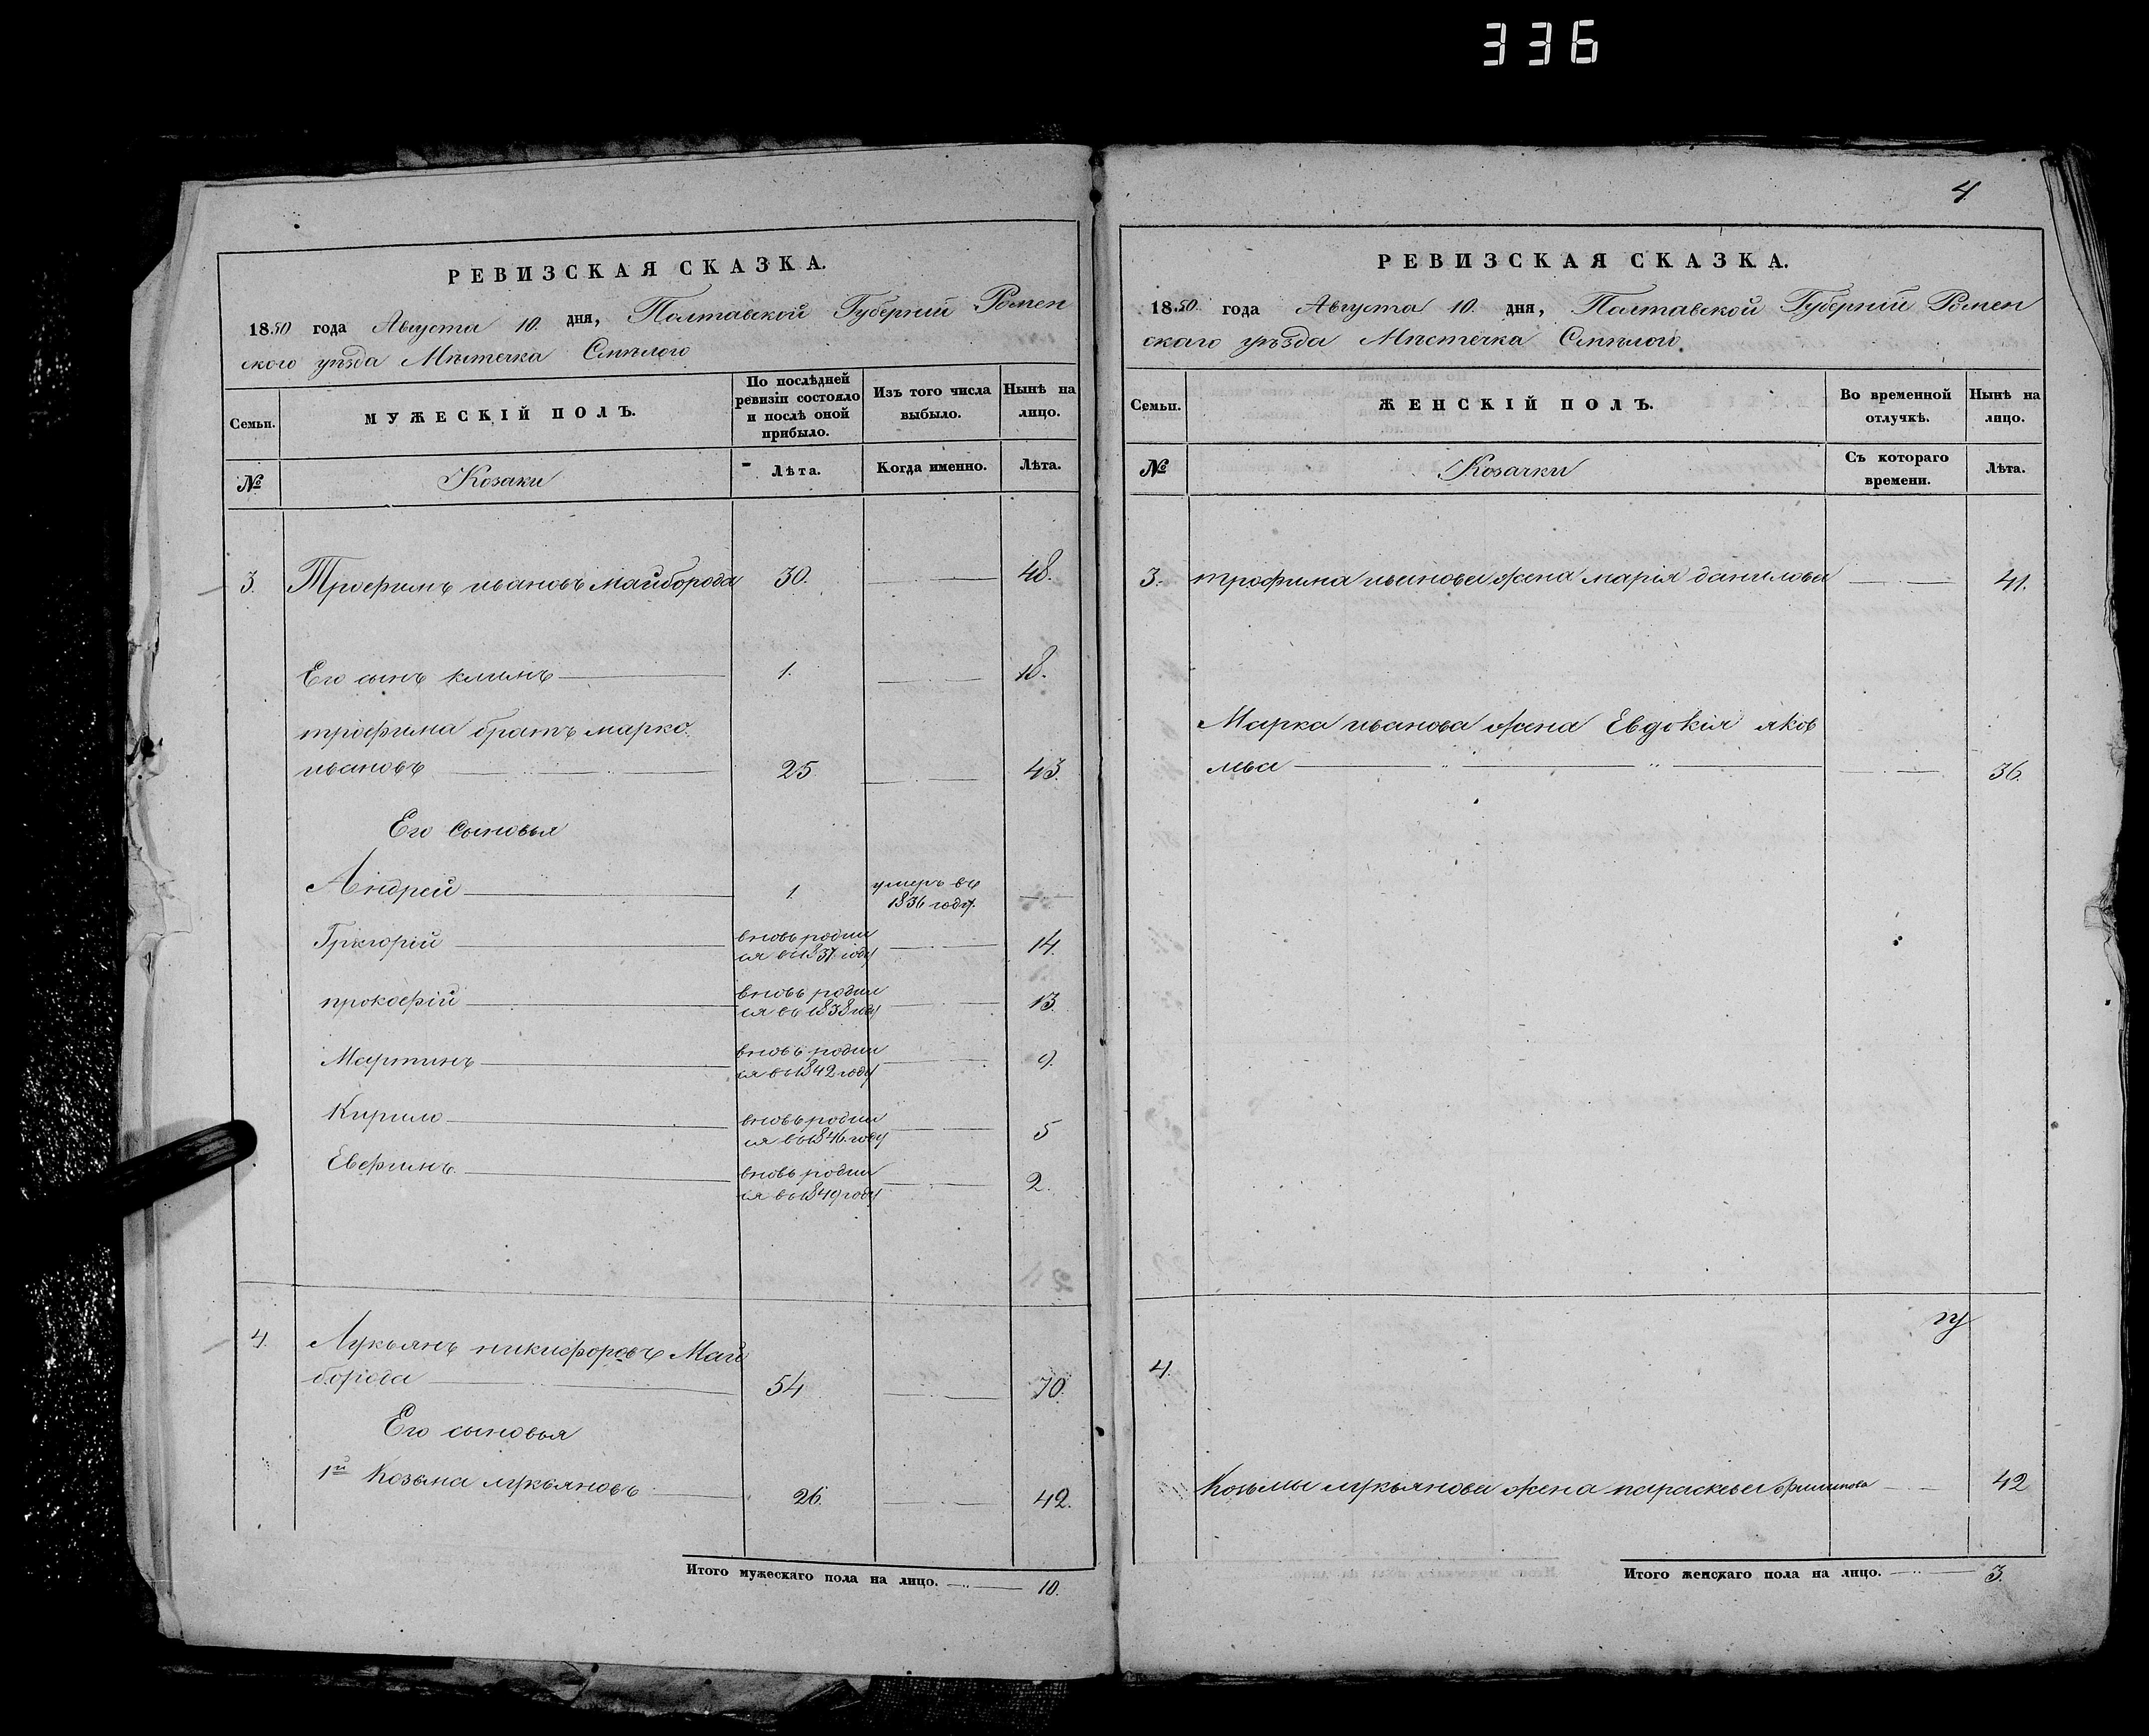 336
РЕВИЗСКАЯ СКАЗКА.
1850 года Августа 10. дня, Полтавской Губерніи Ромен
ского уѣзда Мѣстечка Смѣлого
Семьи.
МУЖЕСКІЙ ПОЛЪ.
По послѣдней ревизіи состояло и послѣ оной прибыло.
Изъ того числа выбыло.
Нынѣ на лицо.
№ Козаки Лѣта. Когда именно. Лѣта.
3. Трофимъ ивановъ майборода 30. 48.
Его сынъ климъ 1. 18.
трофима братъ марко
ивановъ 25 43.
Его Сыновья
Андрей 1. умеръ въ 1836 году.
Григорій вновь родил ся въ 1837 году 14.
прокофій вновь родил ся въ 1838 году 13.
Мартинъ вновь родил ся въ 1842 году 9.
Кирило вновь родил ся въ 1846 году 5
Евфимъ вновь родил ся въ 1849 году 2.
4. Лукьянъ никифоровъ Май
борода 54 70.
Его сыновья
1й Козьма лукьяновъ 26. 42.
Итого мужескаго пола на лицо. 10.
4
РЕВИЗСКАЯ СКАЗКА.
1850 года Августа 10. дня, Полтавской Губерніи Ромен
скаго уѣзда Мѣстечка Смѣлого.
Семьи.
ЖЕНСКІЙ ПОЛЪ.
Во временной отлучкѣ.
Нынѣ на лицо.
№ Козачки Съ котораго времени. Лѣта.
3. трофима иванова жена марія данилова 41.
Марка иванова жена Евдокія яков
лва 36.
4.
Козьмы лукьянова жена параскева филипова 42
Итого женскаго пола на лицо. 3.